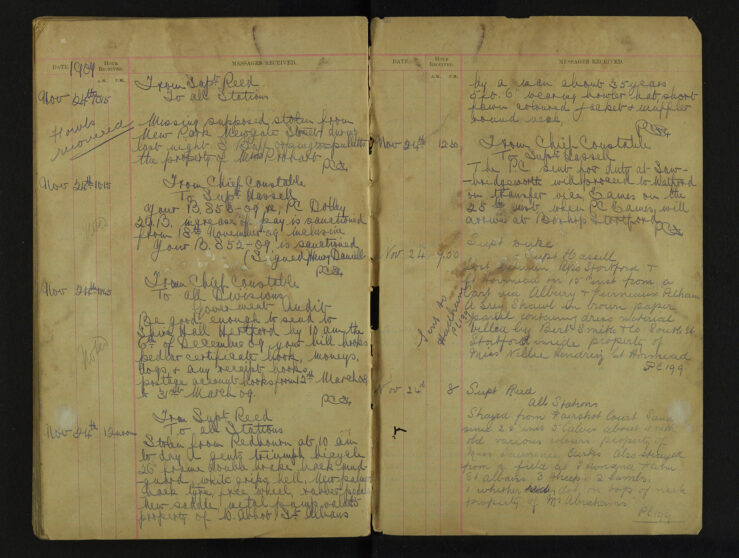 DATE. HOUR RECEIVED. MESSAGES RECEIVED.
1909 A.M. P.M.
From Supt Reed
Nov 24th 10.15 To all Stations
Fowls recovered
Missing supposed stolen from
New Park Newgate Street during
last night 3 Buff orpington pullets
the property of Miss
PC
Nov 24th 10.15 From Chief Constable
To Supt Hassell
Your B. 353-09 re PC Dolley
increase of pay is sanctioned
from 18th November 09 inclusive
Your B. 352-09 is sanctioned
(Signed) Henry Daniell
PC
Noted
Nov 24th From Chief Constable
To all Divisions
Government Audit
Be good enough to send to
Shire Hall Hertford by 10 am the
6th of December 09 your bill books
pedlar certificate book, moneys,
dogs, & any receipt books
postage account books from 12th March 08
to 31st March 09.
PC
Noted
Nov 24th 12 noon From Supt Reed
To all Stations
Stolen from Redbourn at 10 am
to day a gents triumph bicycle
26 frame double brake back mud
guard, white grips, bell, New palmer
back tyre, free wheel, rubber pedals
new saddle, metal pump, valued
property of Abbot, St Albans
DATE. HOUR RECEIVED. MESSAGES RECEIVED.
A.M. P.M.
by a man about 35 years
5 ft. 6 wearing bowler hat, short
fawn coloured jacket & muffler
round neck.
PC
Nov 24th 12.30 From Chief Constable
To Supt Hassell
The PC sent for duty at Saw-
bridgeworth will proceed to Watford
on transfer vice Eames on the
25th inst when PC Eames will
arrive at Bishops Stortford
PC
Supt Duke
Nov 24 9.50 Supt Hassell
Lost between Bps Stortford &
Hormead on 10th inst from a
cart via Albury & Furneaux Pelham
a Grey Shawl in brown paper
parcel containing dress material
billed by Smith & Co South St
Stortford inside property of
Miss Nellie Hendring at Hormead
PC 199
Sent to Hadham
PC 199
Nov 24th 8 Supt Reed
All Stations
Strayed from Fairshot Court Sand
since 22 inst 5 Calves about 6 mth
old various colours property of
Miss Lawrence Curtis also strayed
from a field at
St Albans 3 Sheep & 2 lambs.
1 whether dot on tops of neck
property of Mr Abrahams
PC 199